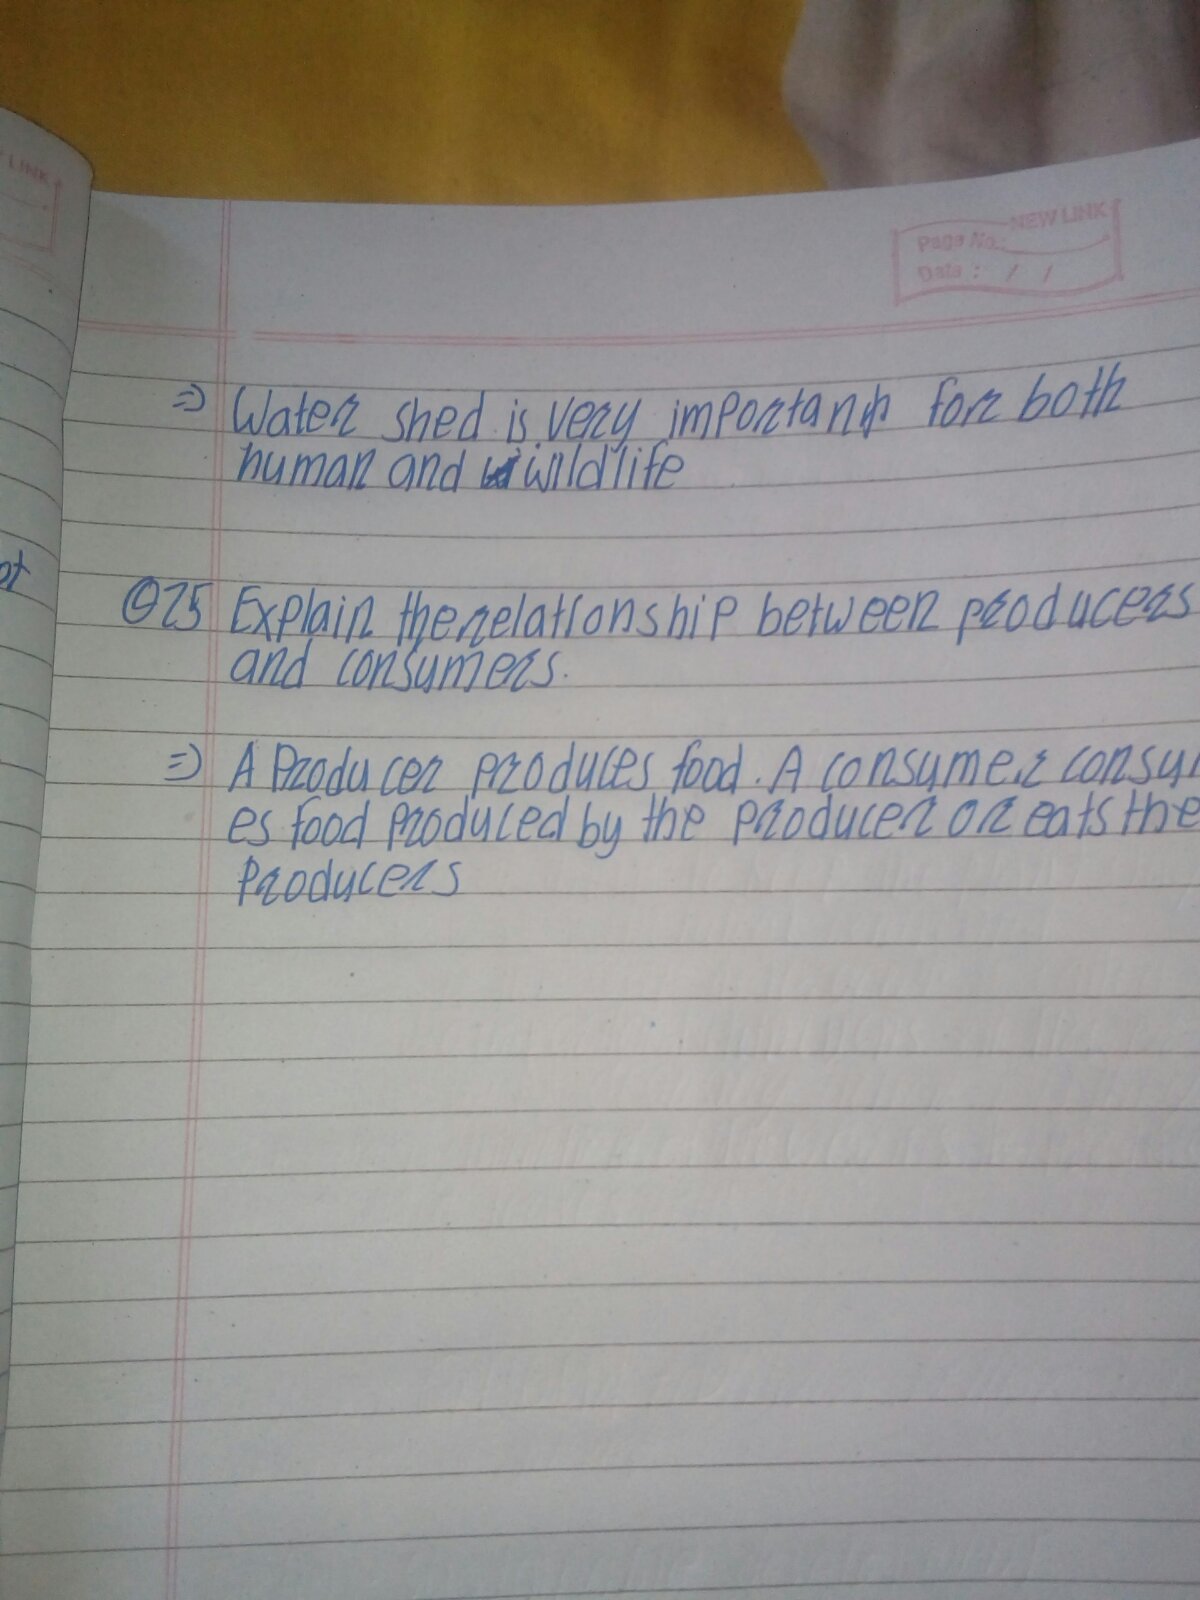 LINK
NEW LINK
Page No.:
Date : / /
=) Water shed is very important for both
human and wildlife
ot
Q25 Explain the relationship between producers
and consumers.
=) A Producer produces food. A consumer consu
es food produced by the producer or eats the
Producers